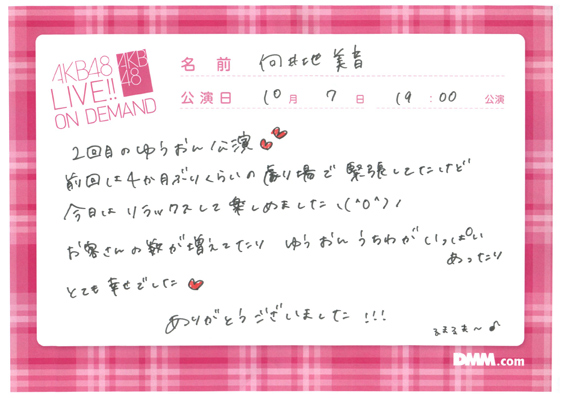 AKB48
LIVE!!
ON DEMAND
AKB
48
名前 向井地 美音
公演日 10月 7日 19:00 公演
2回目のゆうおん公演
前回は4か月ぶりくらいの劇場で緊張してたけど
今日はリラックスして楽しめました\(^o^)/
お客さんの数が増えてたり ゆうおんうちわがいっぱい
あったり
とても幸せでした
ありがとうございました!!!
るえるえ〜♪
DMM.com